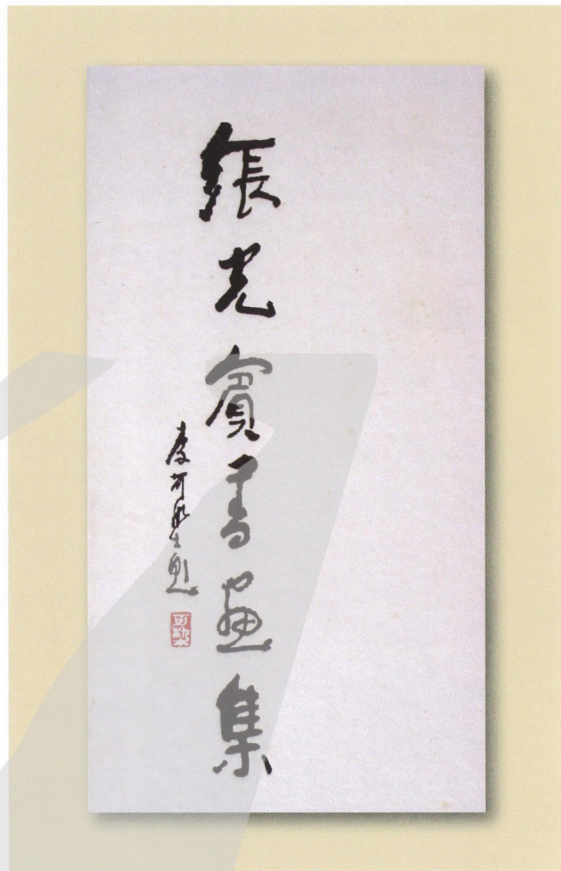 張光賓書畫集
李可染題
可染